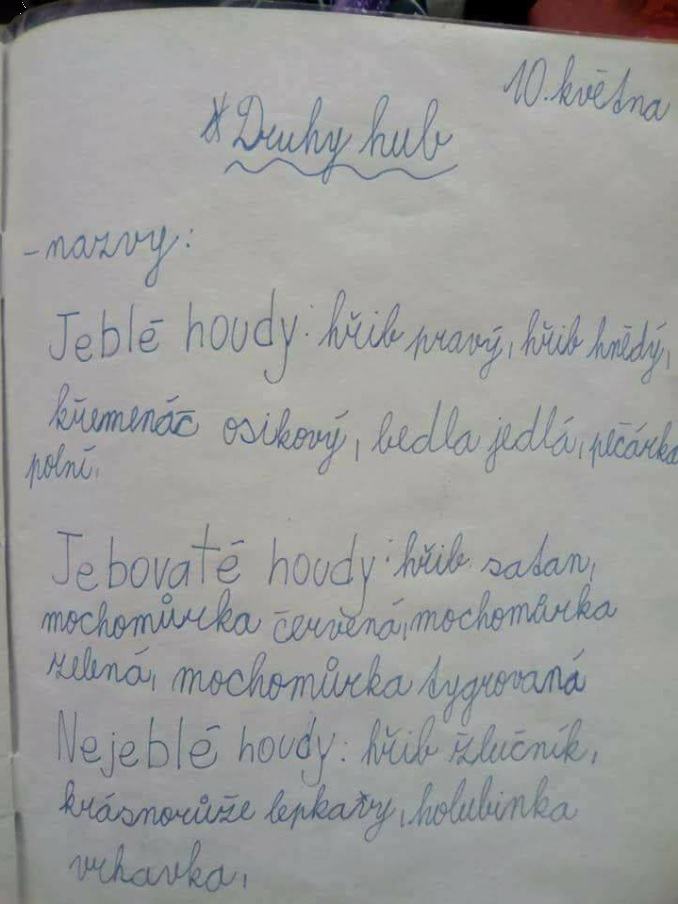 10. května
*Druhy hub
- nazvy:
Jeblé houdy: hřib pravý, hřib hnědý,
křemenáč osikový, bedla jedlá, pečárka
polní,
Jebovaté houdy: hřib satan,
mochomůrka červená, mochomůrka
zelená, mochomůrka tygrovaná
Nejeblé houdy: hřib žlučník,
krásnorůže lepkavy, holubinka
vrhavka,